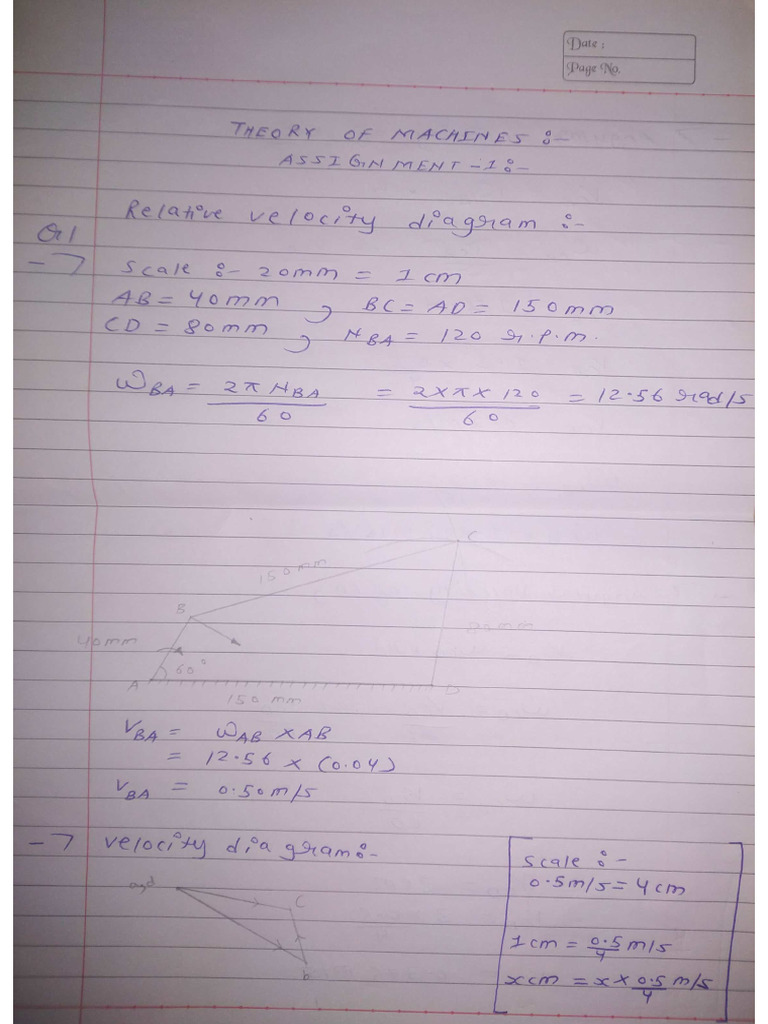 Date :
Page No.
THEORY OF MACHINES :-
ASSIGNMENT -1 :-
Relative velocity diagram :-
Q1
→ Scale :- 20mm = 1cm
AB = 40mm , BC = AD = 150mm
CD = 80mm , N_BA = 120 r.p.m.
ω_BA = 2πN_BA/60 = 2×π×120/60 = 12.56 rad/s
C
150mm
B
80mm
40mm
60°
A D
150 mm
V_BA = ω_AB × AB
= 12.56 × (0.04)
V_BA = 0.50m/s
→ velocity diagram:-
a,d
C
b
Scale :-
0.5m/s = 4cm
1cm = 0.5/4 m/s
x cm = x × 0.5/4 m/s